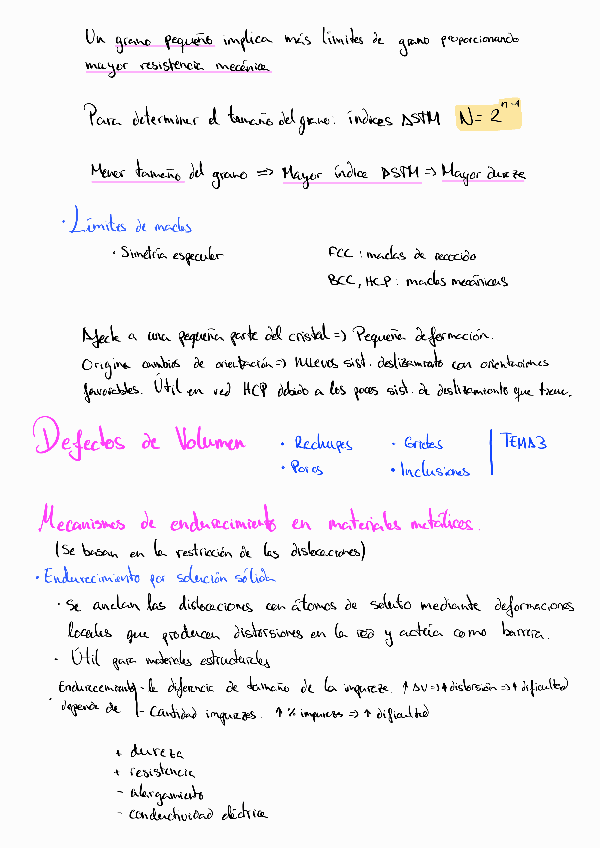 Un grano pequeño implica más límites de grano proporcionando
mayor resistencia mecánica
Para determinar el tamaño del grano. índices ASTM N = 2^(n-1)
Menor tamaño del grano => Mayor índice ASTM => Mayor dureza
· Límites de maclas
· Simetría especular FCC : maclas de recocido
BCC, HCP : maclas mecánicas
Afecta a una pequeña parte del cristal => Pequeña deformación.
Origina cambios de orientación => nuevos sist. deslizamiento con orientaciones
favorables. Útil en red HCP debido a los pocos sist. de deslizamiento que tiene.
Defectos de Volumen · Rechupes · Grietas | TEMA3
· Poros · Inclusiones
Mecanismos de endurecimiento en materiales metálicos.
(Se basan en la restricción de las dislocaciones)
· Endurecimiento por solución sólida
· Se anclan las dislocaciones con átomos de soluto mediante deformaciones
locales que producen distorsiones en la red y actúa como barrera.
· Útil para materiales estructurales
Endurecimiento - la diferencia de tamaño de la impureza. ↑ ΔV => ↑ distorsión => ↑ dificultad
· depende de - Cantidad impurezas. ↑ % impureza => ↑ dificultad
+ dureza
+ resistencia
- alargamiento
- conductividad eléctrica